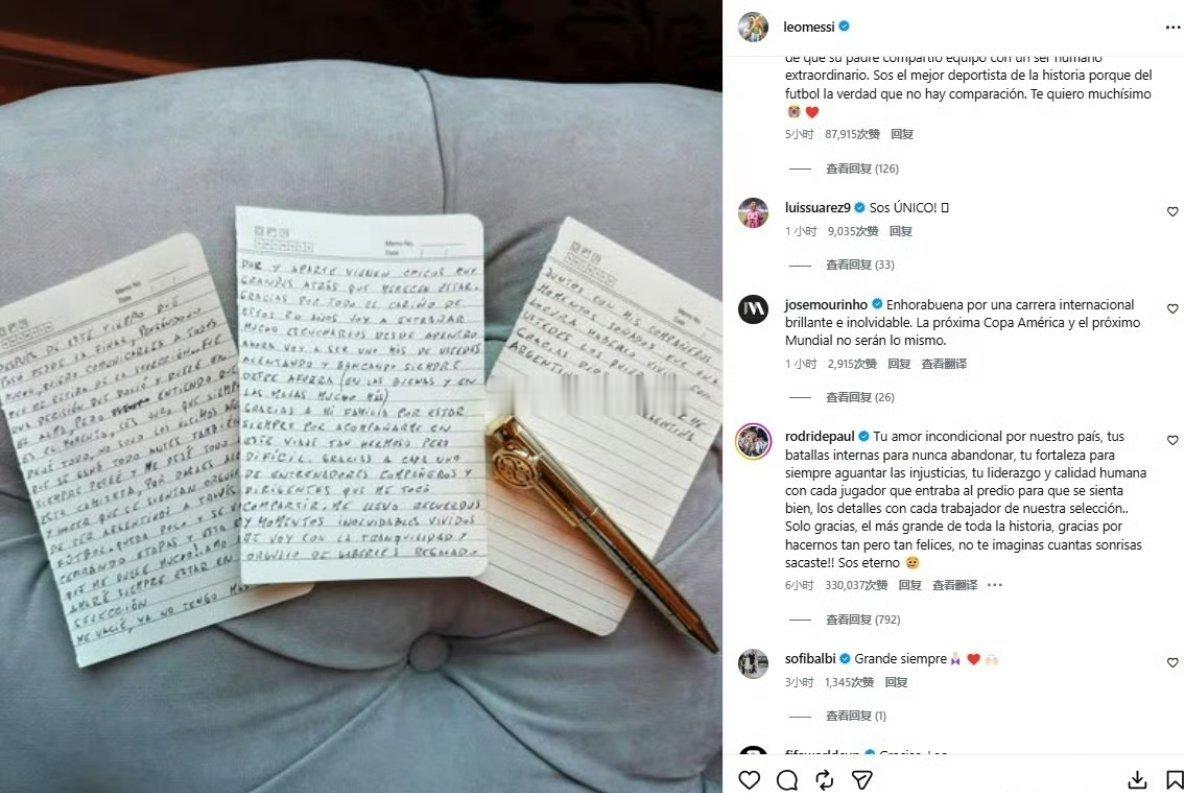 Memo No.
Date
DESPUÉS DE ESTE TIEMPO QUE
PASÓ DESDE LA FINAL
QUE ME RETIRO DE LA SELECCIÓN. FUE
UNA DECISIÓN QUE DOLIÓ Y DUELE EN
EL ALMA PERO ENTIENDO QUE
ES EL MOMENTO.
SIEMPRE PELEÉ Y ME DEJÉ TODO
ESTA CAMISETA, POR DARLES
Y HACER QUE SE SIENTAN
DE SER ARGENTINOS A TRAVÉS
FÚTBOL.
CERRANDO ETAPAS Y ESTA ES
QUE ME DUELE MUCHO. AMO
AMARÉ SIEMPRE ESTAR EN
SELECCIÓN
ME VACIÉ, YA NO TENGO MÁS
Memo No.
Date
DAR Y APARTE VIENEN CHICOS MUY
GRANDES ATRÁS QUE MERECEN ESTAR.
GRACIAS POR TODO EL CARIÑO DE
ESTOS 20 AÑOS VOY A EXTRAÑAR
MUCHO ESCUCHARLOS DESDE ADENTRO
AHORA VOY A SER UNO MÁS DE USTEDES
ALENTANDO Y BANCANDO SIEMPRE
DESDE AFUERA (EN LAS BUENAS Y EN
LAS MALAS MUCHO MÁS)
GRACIAS A MI FAMILIA POR ESTAR
SIEMPRE POR ACOMPAÑARME EN
ESTE VIAJE TAN HERMOSO PERO
DIFÍCIL. GRACIAS A CADA UNO
DE ENTRENADORES COMPAÑEROS Y
DIRIGENTES QUE ME TOCÓ
COMPARTIR. ME LLEVO RECUERDOS
Y MOMENTOS INOLVIDABLES VIVIDOS
ME VOY CON LA TRANQUILIDAD Y
ORGULLO DE HABERLES REGALADO
Memo No.
Date
JUNTOS CON MIS COMPAÑEROS
MOMENTOS SOÑADOS
LOCURA HABERLO VIVIDO
USTEDES LOS QUIERO
GRACIAS
leomessi
de que su padre compartió equipo con un ser humano
extraordinario. Sos el mejor deportista de la historia porque del
futbol la verdad que no hay comparación. Te quiero muchísimo
😭 ❤️
5小时 87,915次赞 回复
查看回复 (126)
luissuarez9 Sos ÚNICO!
1小时 9,035次赞 回复
查看回复 (33)
josemourinho Enhorabuena por una carrera internacional
brillante e inolvidable. La próxima Copa América y el próximo
Mundial no serán lo mismo.
1小时 2,915次赞 回复 查看翻译
查看回复 (26)
rodridepaul Tu amor incondicional por nuestro país, tus
batallas internas para nunca abandonar, tu fortaleza para
siempre aguantar las injusticias, tu liderazgo y calidad humana
con cada jugador que entraba al predio para que se sienta
bien, los detalles con cada trabajador de nuestra selección..
Solo gracias, el más grande de toda la historia, gracias por
hacernos tan pero tan felices, no te imaginas cuantas sonrisas
sacaste!! Sos eterno
6小时 330,037次赞 回复 查看翻译
查看回复 (792)
sofibalbi Grande siempre
3小时 1,345次赞 回复
查看回复 (1)
fifaworldcup Gracias, Leo